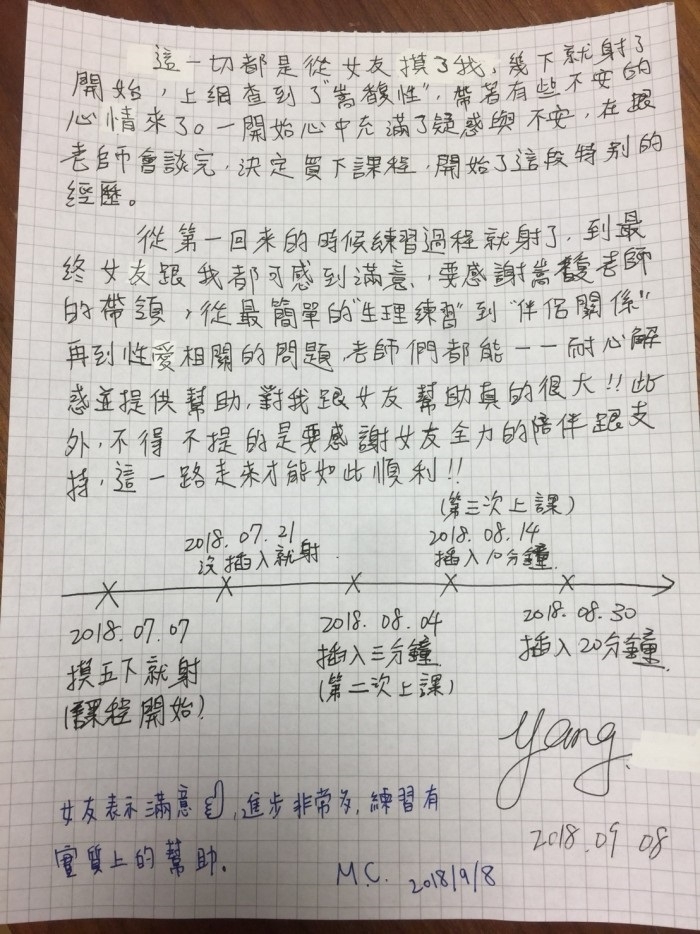 這一切都是從女友摸了我,幾下就射了
開始,上網查到了"嵩馥性",帶著有些不安的
心情來了。一開始心中充滿了疑惑與不安,在跟
老師會談完,決定買下課程,開始了這段特別的
經歷。
從第一回來的時候練習過程就射了,到最
終女友跟我都可感到滿意,要感謝嵩馥老師
的帶領,從最簡單的"生理練習"到"伴侶關係"
再到性愛相關的問題,老師們都能一一耐心解
惑並提供幫助,對我跟女友幫助真的很大!!此
外,不得不提的是要感謝女友全力的陪伴跟支
持,這一路走來才能如此順利!!
(第三次上課)
2018.07.21
沒插入就射
2018.08.14
插入10分鐘
2018.07.07
摸五下就射
(課程開始)
2018.08.04
插入三分鐘
(第二次上課)
2018.08.30
插入20分鐘
Yang.
2018.09 08
女友表示滿意,進步非常多,練習有
實質上的幫助。
M.C. 2018/9/8